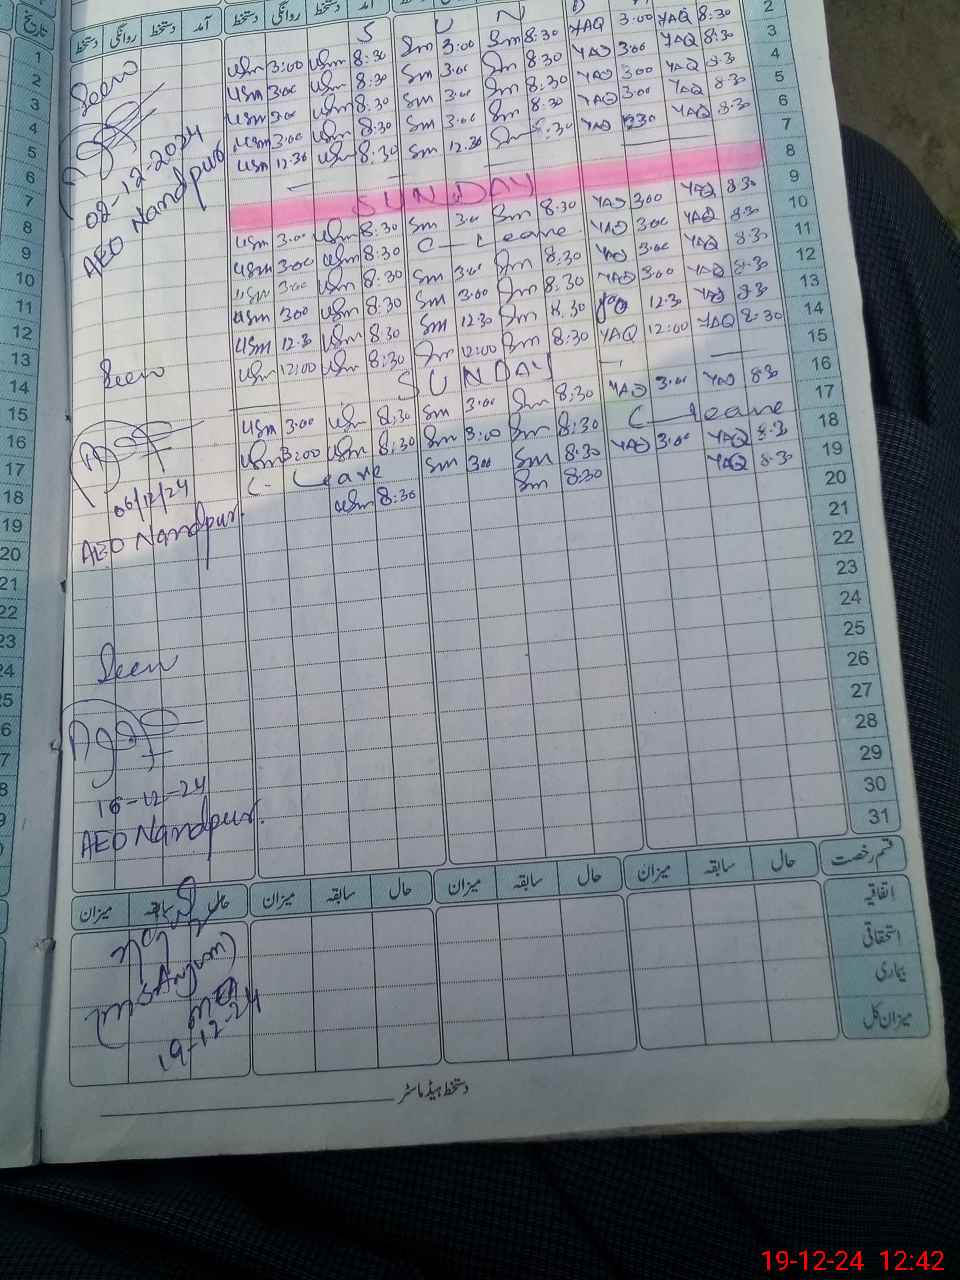 دستخط روانگی دستخط آمد دستخط روانگی دستخط آمد
S U N
Usm 3:00 Usm 8:30 Sm 3:00 Sm 8:30 YAQ 3:00 YAQ 8:30 2
Usm 3:00 Usm 8:30 Sm 3:00 Sm 8:30 YAQ 3:00 YAQ 8:30 3
Usm 3:00 Usm 8:30 Sm 3:00 Sm 8:30 YAQ 3:00 YAQ 8:30 4
Usm 3:00 Usm 8:30 Sm 3:00 Sm 8:30 YAQ 3:00 YAQ 8:30 5
Usm 12:30 Usm 8:30 Sm 12:30 Sm 8:30 YAQ 8:30 6
7
SUNDAY 8
Usm 3:00 Usm 8:30 Sm 3:00 Sm 8:30 YAQ 3:00 YAQ 8:30 9
Usm 3:00 Usm 8:30 C-Leave YAQ 3:00 YAQ 8:30 10
Usm 3:00 Usm 8:30 Sm 3:00 Sm 8:30 YAQ 3:00 YAQ 8:30 11
Usm 3:00 Usm 8:30 Sm 3:00 Sm 8:30 YAQ 3:00 YAQ 8:30 12
Usm 12:30 Usm 8:30 Sm 12:30 Sm 8:30 YAQ 12:30 YAQ 8:30 13
Usm 12:00 Usm 8:30 Sm 12:00 Sm 8:30 YAQ 12:00 YAQ 8:30 14
SUNDAY 15
Usm 3:00 Usm 8:30 Sm 3:00 Sm 8:30 YAQ 3:00 YAQ 8:30 16
Usm 3:00 Usm 8:30 Sm 3:00 Sm 8:30 C-Leave 17
C. Leave Sm 3:00 Sm 8:30 YAQ 3:00 YAQ 8:30 18
Usm 8:30 Sm 8:30 YAQ 8:30 19
20
21
22
23
24
25
26
27
28
29
30
31
Seen
02-12-2024
AEO Nandpur
Seen
06/12/24
AEO Nandpur.
Seen
16-12-24
AEO Nandpur.
میزان سابقہ حال میزان سابقہ حال میزان سابقہ حال میزان سابقہ حال قسم رخصت
اتفاقیہ
استحقاقی
بیماری
میزان کل
(MS Anjum)
19-12-24
دستخط ہیڈ ماسٹر
تاریخ
1
2
3
4
5
6
7
8
9
10
11
12
13
14
15
16
17
18
19
20
21
22
23
24
25
19-12-24 12:42